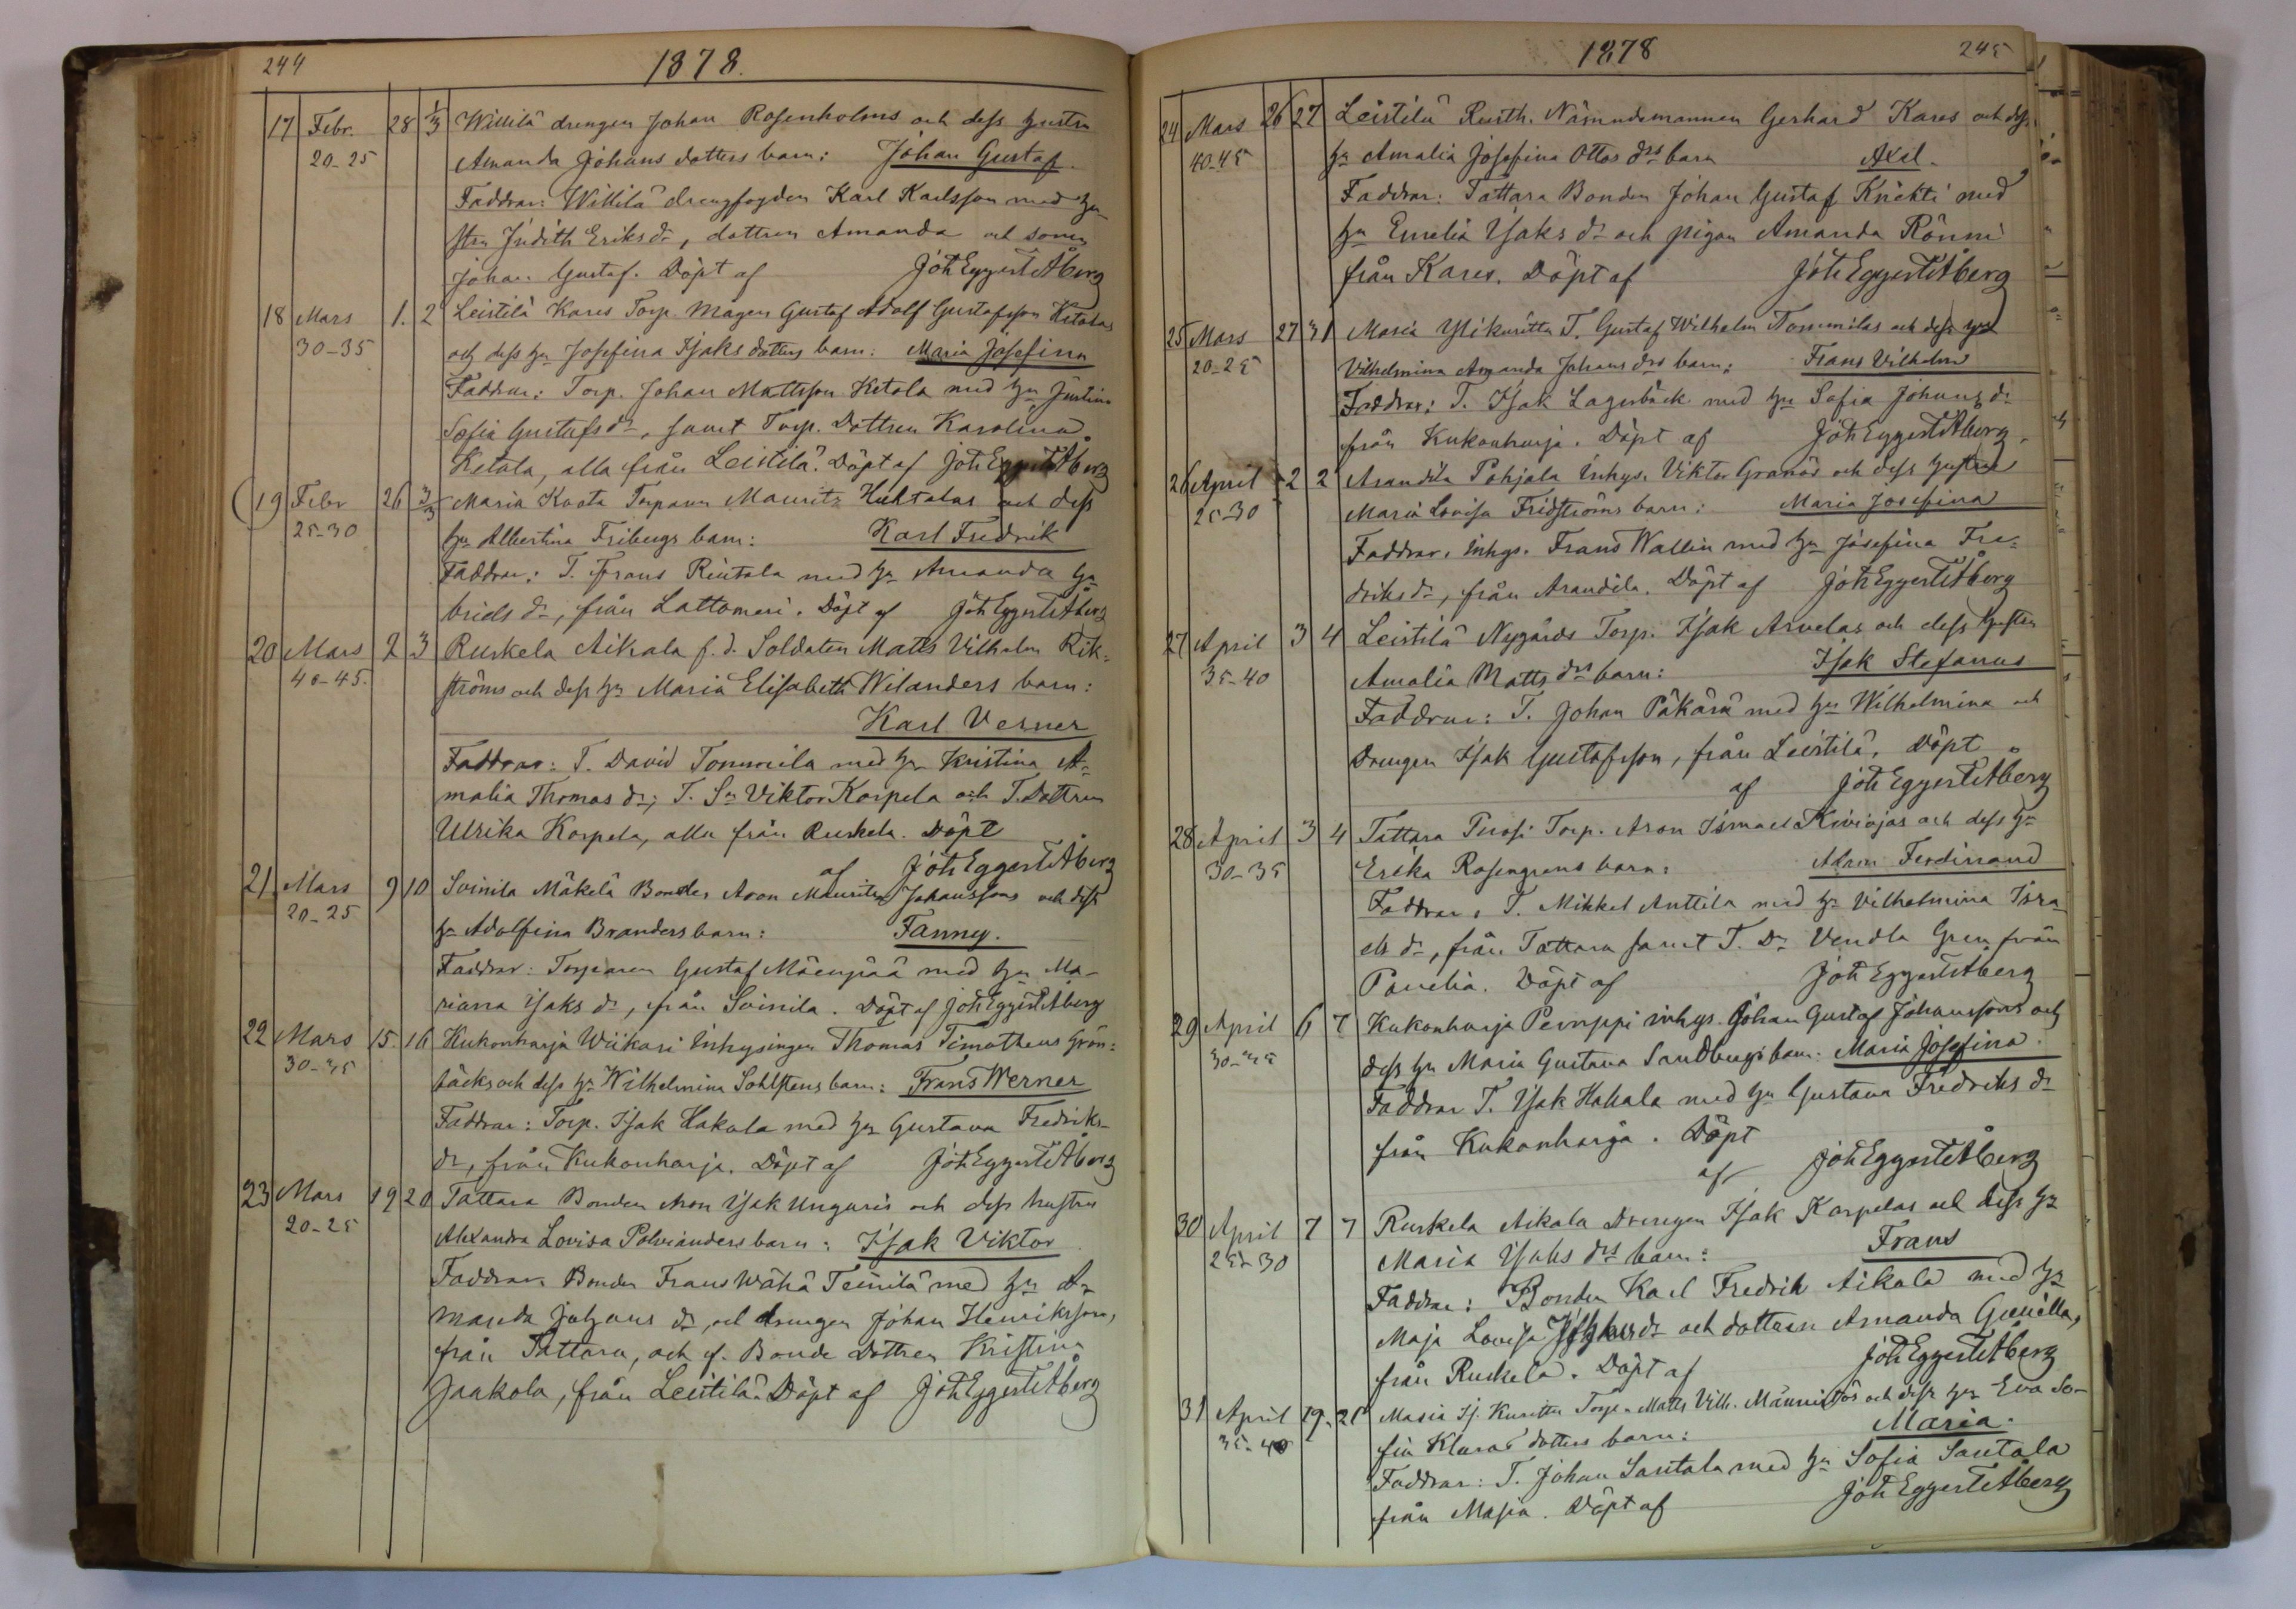 244
1878.
17 Febr. 28 1/3 Willilä drengen Johan Rosenholms och dess hustru
20-25 Amanda Johans dotters barn: Johan Gustaf.
Faddrar: Willilä drengfogden Karl Karlsson med hu-
stru Judith Eriks dr, dottren Amanda och sonen
Johan Gustaf. Döpt af Joh Eggert Åberg
18 Mars 1. 2 Leistilä Kares Torp. Mågen Gustaf Adolf Gustafsson Ketolas
30-35 och dess hu Josefina Isaks dotters barn: Maria Josefina
Faddrar: Torp. Johan Mattsson Ketola med hu Justina
Sofia Gustafs dr, samt Torp. Dottren Karolina
Ketola, alla från Leistilä. Döpt af Joh Eggert Åberg
19 Febr 26 3/3 Masia Knota Torparen Maurits Huhtalas och dess
25-30 hu Albertina Fribergs barn: Karl Fredrik
Faddrar: T. Frans Rintala med hu Amanda Ga-
briels dr, från Lattomeri. Döpt af Joh Eggert Åberg
20 Mars 2 3 Ruskela Aikala f. d. Soldaten Matts Vilhelm Rik-
40-45. ströms och dess hu Maria Elisabeth Wilanders barn:
Karl Verner
Faddrar: T. David Tommila med hu Kristina A-
malia Thomas dr; T. Sn Viktor Korpela och T. Dottren
Ulrika Korpela, alla från Ruskela. Döpt
af Joh Eggert Åberg
21 Mars 9 10 Soinila Mäkelä Bonden Aron Maurits Johanssons och dess
20-25 hu Adolfina Branders barn: Fanny.
Faddrar: Torparen Gustaf Mäenpää med hu Ma-
riana Isaks dr, från Soinila. Döpt af Joh Eggert Åberg
22 Mars 15. 16 Kukonharja Wiikari Inhysingen Thomas Timotheus Grön-
30-35 bäcks och dess hu Wilhelmina Sohlstens barn: Frans Werner
Faddrar: Torp. Isak Hakala med hu Gustava Fredriks-
dr, från Kukonharja. Döpt af Joh Eggert Åberg
23 Mars 19 20 Tattara Bonden Aron Isak Unguris och dess hustru
20-25 Alexandra Lovisa Polvianders barn: Isak Viktor
Faddrar Bonden Frans Wähä Teinilä med hu A-
manda Johans dr, och drengen Johan Henriksson,
från Tattara, och f. Bonde Dottren Kristina
Jaakola, från Leistilä. Döpt af Joh Eggert Åberg
1878
245
24 Mars 26 27 Leistilä Rusth. Nämndemannen Gerhard Kares och dess
40-45 hu Amalia Josefina Ottos drs barn Axel.
Faddrar: Tattara Bonden Johan Gustaf Knihti med
hu Emelia Isaks dr och pigan Amanda Rönni
från Kares. Döpt af Joh Eggert Åberg
25 Mars 27 31 Masia Ylikuritta T. Gustaf Wilhelm Tommilas och dess hu
20-25 Vilhelmina Amanda Johans drs barn: Frans Vilhelm
Faddrar: T. Isak Lagerbäck med hu Sofia Johans dr
från Kukonharja. Döpt af Joh Eggert Åberg.
26 April 2 2 Arandila Pohjala Inhys. Viktor Granös och dess hustru
25-30 Maria Lovisa Fridströms barn: Maria Josefina
Faddrar: Inhys. Frans Wallin med hu Josefina Fre-
driks dr, från Arandila. Döpt af Joh Eggert Åberg
27 April 3 4 Leistilä Nygårds Torp. Isak Arvelas och dess hustru
35-40 Amalia Matts drs barn: Isak Stefanus
Faddrar: T. Johan Päkärä med hu Wilhelmina och
Drengen Isak Gustafsson, från Leistilä. Döpt
af Joh Eggert Åberg
28 April 3 4 Tattara Tuosi Torp. Aron Ismael Kiviojas och dess hu
30-35 Erika Rosengrens barn: Adam Ferdinand
Faddrar: T. Mikkel Anttila med hu Vilhelmina Isra-
els dr, från Tattara samt T. Dr Vendla Gren från
Panelia. Döpt af Joh Eggert Åberg
29 April 6 7 Kukonharja Pernppi inhys. Johan Gustaf Johanssons och
30-35 dess hu Maria Gustava Sandbergs barn: Maria Josefina.
Faddrar T. Isak Hakala med hu Gustava Fredriks dr
från Kukonharja. Döpt
af Joh Eggert Åberg
30 April 7 7 Ruskela Aikala Drengen Isak Korpelas och dess hu
25-30 Maria Isaks drs barn: Frans
Faddrar: Bonden Karl Fredrik Aikala med hu
Maja Lovisa dr och dottren Amanda Gunilla,
från Ruskela. Döpt af Joh Eggert Åberg
31 April 19. 21 Masia Kuritta Torp. Matts Vilh. Männistös och dess hu Eva So-
35-40 fia Klaras dotters barn: Maria.
Faddrar: T. Johan Santala med hu Sofia Santala
från Masia. Döpt af Joh Eggert Åberg